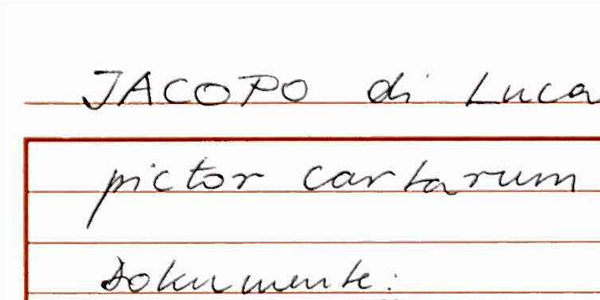 JACOPO di Luca
pictor cartarum
Dokumente: